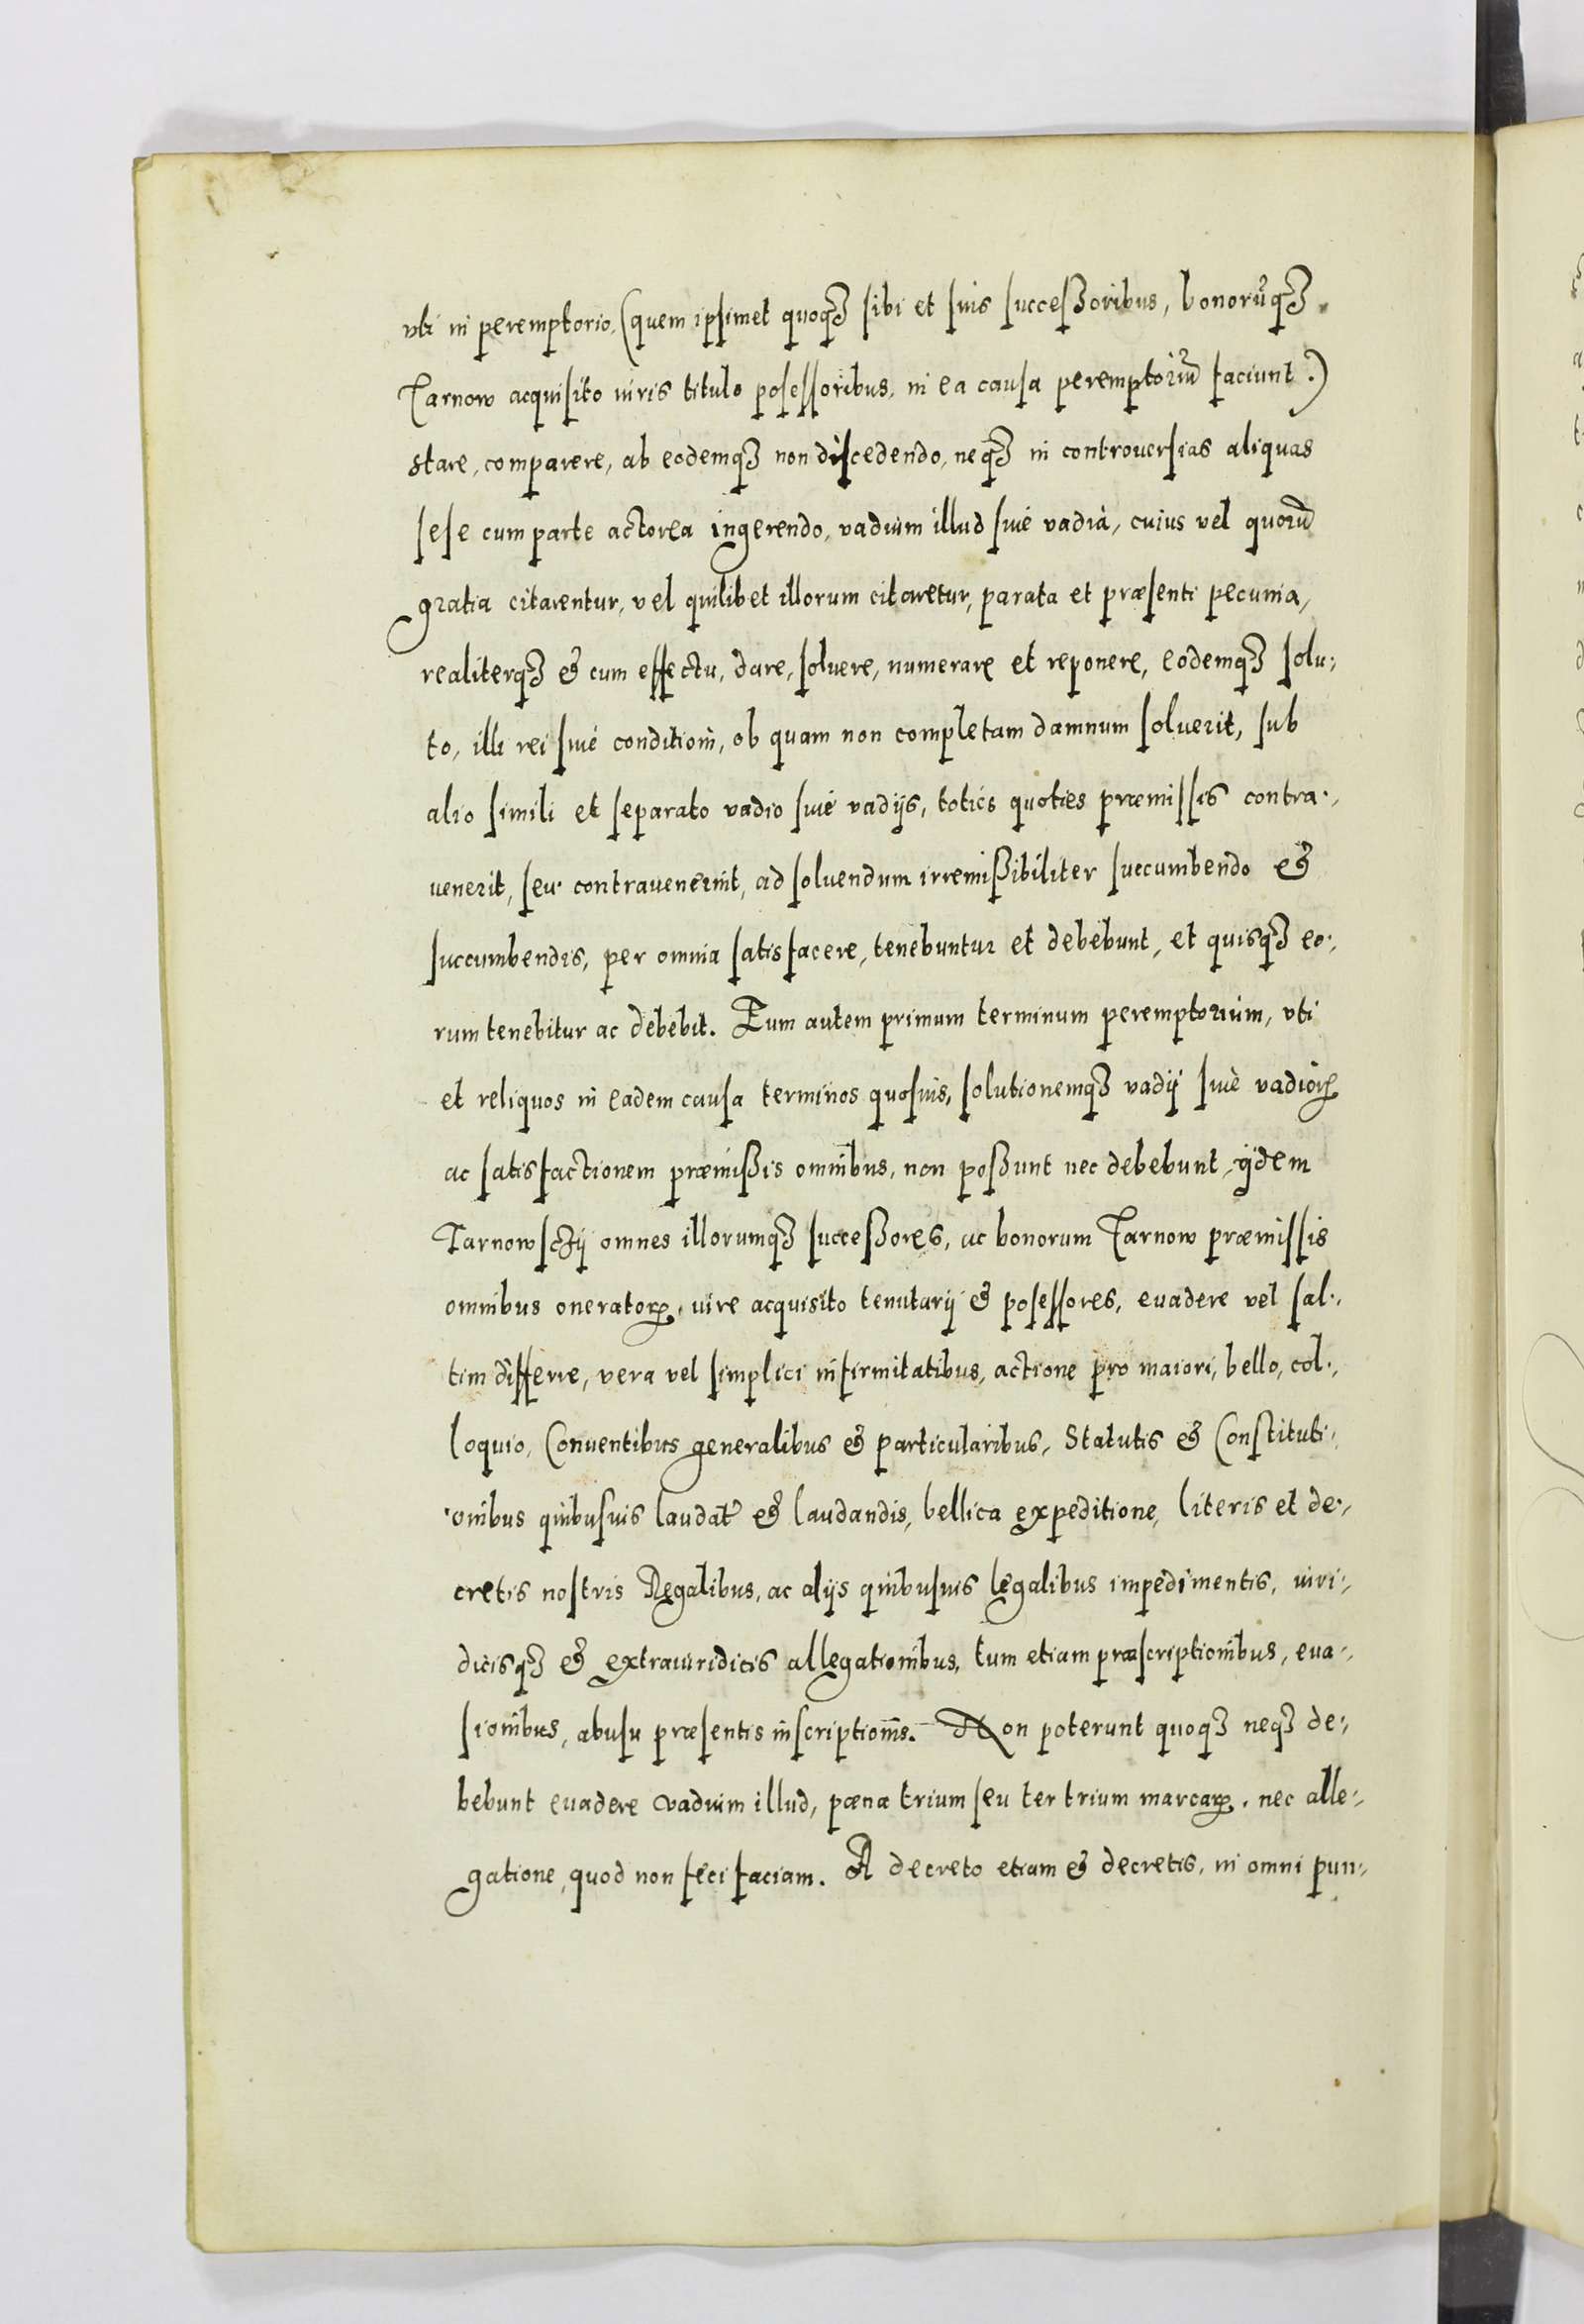 vti in peremptorio, (quem ipsimet quoqꝫ sibi et suis succeßoribus, bonorũqꝫ
Tarnow acquisito iuris titulo posessoribus, in ea causa peremptoriũ faciunt.)
stare, comparere, ab eodemqꝫ non discedendo, neqꝫ in controuersias aliquas
sese cum parte actorea ingerendo, vadium illud siue vadia, cuius vel quorũ
gratia citarentur, vel quilibet illorum citaretur, parata et præsenti pecunia,
realiterqꝫ & cum effectu, dare, soluere, numerare et reponere, eodemqꝫ solu-
to, illi rei siue conditioni, ob quam non completam damnum soluerit, sub
alio simili et separato vadio siue vadijs, toties quoties præmissis contra-
uenerit, seu contrauenerint, ad soluendum irremißibiliter succumbendo &
succumbendis, per omnia satisfacere, tenebuntur et debebunt, et quisqꝫ eo-
rum tenebitur ac debebit. Eum autem primum terminum peremptorium, vti
et reliquos in eadem causa terminos quosuis, solutionemqꝫ vadij siuè vadioꝝ
ac satisfactionem præmißis omnibus, non poßunt nec debebunt, ijdem
Tarnowscij omnes illorumqꝫ succeßores, ac bonorum Tarnow præmissis
omnibus oneratoꝝ, iure acquisito tenutarij & posessores, euadere vel sal-
tim differre, vera vel simplici infirmitatibus, actione pro maiori, bello, col-
loquio, Conuentibus generalibus & particularibus, Statutis & Constituti-
onibus quibusuis laudat̃ & laudandis, bellica expeditione, literis et de-
cretis nostris Regalibus, ac alijs quibusuis legalibus impedimentis, iuri-
dicisqꝫ & extraiuridicis allegationibus, tum etiam præscriptionibus, eua-
sionibus, abusu præsentis inscriptionis. Non poterunt quoqꝫ neqꝫ de-
bebunt euadere vadium illud, pæna trium seu ter trium marcaꝝ, nec alle-
gatione, quod non feci faciam. A decreto etiam & decretis, in omni pun-